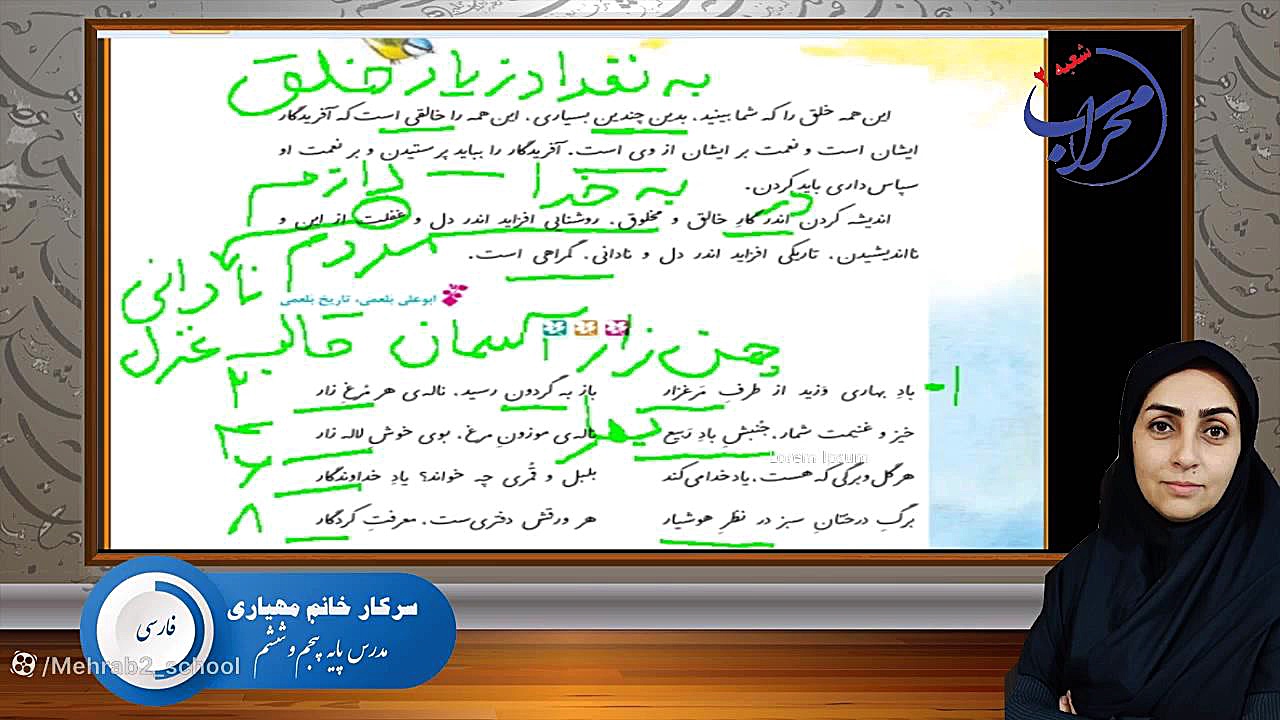 به تعداد زیاد خلق
این همه خلق را که شما بینید، بدین چندین بسیاری، این همه را خالقی است که آفریدگار
ایشان است و نعمت بر ایشان از وی است. آفریدگار را بباید پرستیدن و بر نعمت او
به خدا
سپاس‌داری باید کردن.
در
اندیشه کردن اندر کارِ خالق و مخلوق، روشنایی افزاید اندر دل و غفلت از این و
مردم
نااندیشیدن، تاریکی افزاید اندر دل و نادانی، گمراهی است.
نادانی
ابوعلی بلعمی، تاریخ بلعمی
چمن زار آسمان قالب غزل
۱-
بادِ بهاری وَزید از طرفِ مَرغزار
باز به گردون رسید، ناله‌ی هر مُرغِ زار
۲
خیز و غنیمت شمار، جُنبشِ بادِ رَبیع
ناله‌ی موزونِ مرغ، بوی خوش لاله زار
بهار
هر گل و برگی که هست، یاد خدا می‌کند
بلبل و قُمری چه خواند؟ یادِ خداوندگار
Lorem Ipsum
برگِ درختانِ سبز در نظرِ هوشیار
هر ورقش دفتری‌ست، معرفتِ کردگار
۸
شعبه ۲
محراب
سرکار خانم مهیاری
مدرس پایه پنجم و ششم
فارسی
/Mehrab2_school